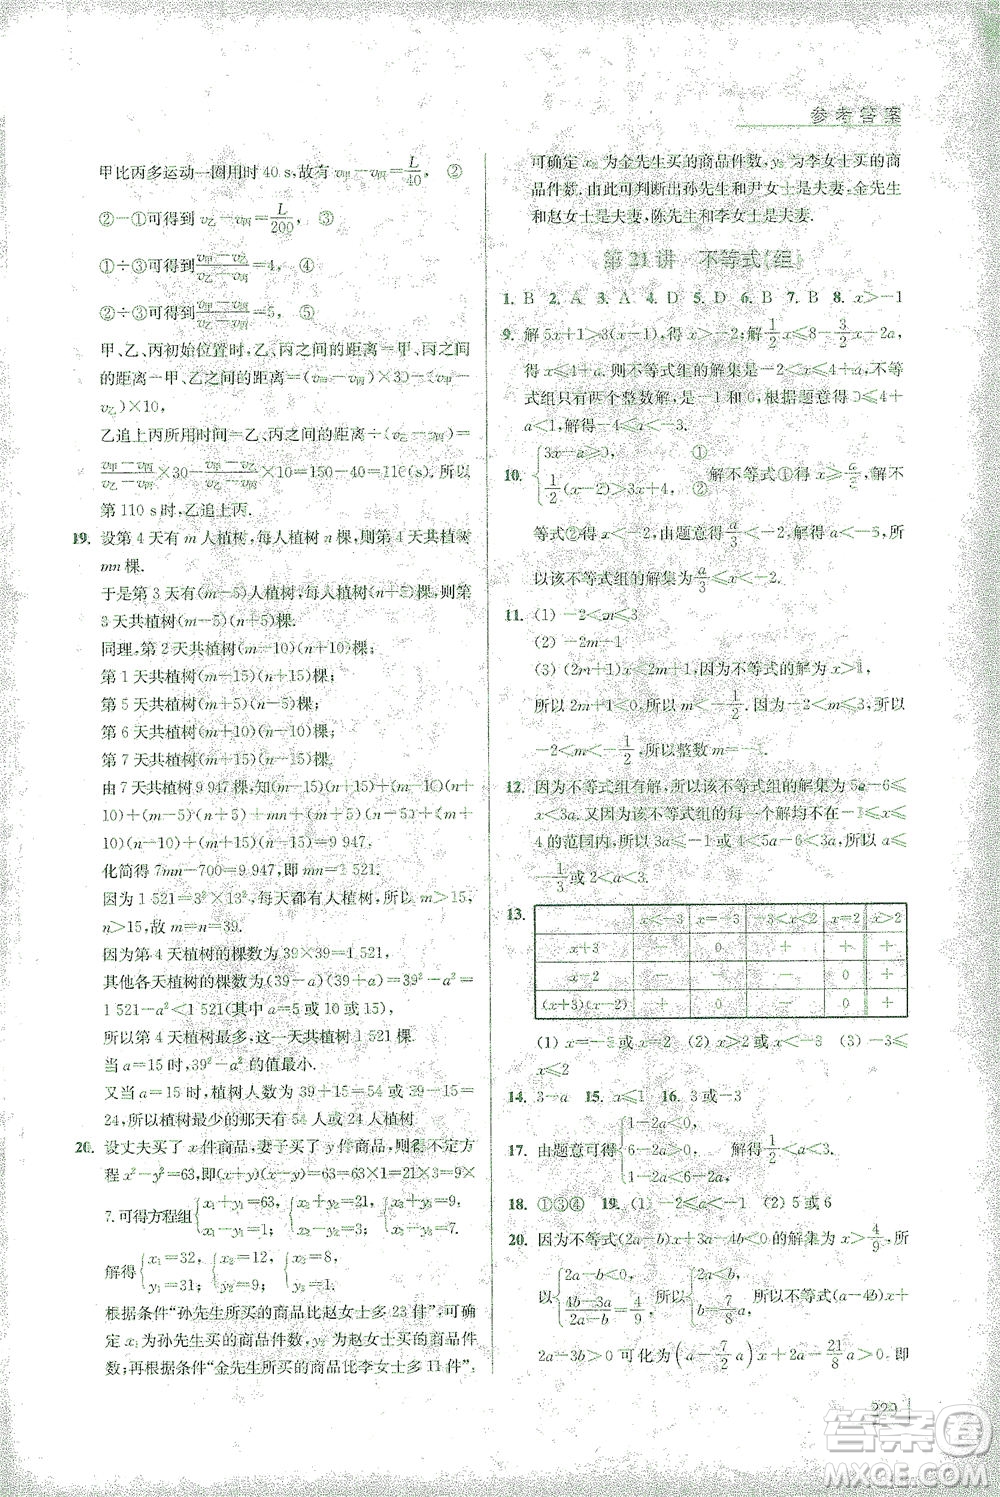 参考答案
甲比丙多运动一圈用时 40 s,故有 v甲−v丙=L/40, ②
②−①可得到 v乙−v丙=L/200, ③
①÷③可得到 (v甲−v乙)/(v乙−v丙)=4, ④
②÷③可得到 (v甲−v丙)/(v乙−v丙)=5, ⑤
甲、乙、丙初始位置时,乙、丙之间的距离=甲、丙
的距离−甲、乙之间的距离=(v甲−v丙)×30−(v甲−
v乙)×10,
乙追上丙所用时间=乙、丙之间的距离÷(v乙−v丙)=
(v甲−v丙)/(v乙−v丙)×30−(v甲−v乙)/(v乙−v丙)×10=150−40=110(s). 所以
第 110 s 时,乙追上丙.
19. 设第 4 天有 m 人植树,每人植树 n 棵,则第 4 天共植树
mn 棵.
于是第 3 天有(m−5)人植树,每人植树(n+5)棵,则第
3 天共植树(m−5)(n+5)棵.
同理,第 2 天共植树(m−10)(n+10)棵;
第 1 天共植树(m−15)(n+15)棵;
第 5 天共植树(m+5)(n−5)棵;
第 6 天共植树(m+10)(n−10)棵;
第 7 天共植树(m+15)(n−15)棵.
由 7 天共植树 9 947 棵,知(m−15)(n+15)+(m−10)(n
+10)+(m−5)(n+5)+mn+(m+5)(n−5)+(m+
10)(n−10)+(m+15)(n−15)=9 947.
化简得 7mn−700=9 947,即 mn=1 521.
因为 1 521=3²×13²,又每天都有人植树,所以 m>15,
n>15,故 m=n=39.
因为第 4 天植树的棵数为 39×39=1 521,
其他各天植树的棵数为(39−a)(39+a)=39²−a²=
1 521−a²<1 521(其中 a=5 或 10 或 15),
所以第 4 天植树最多,这一天共植树 1 521 棵.
当 a=15 时,39²−a² 的值最小.
又当 a=15 时,植树人数为 39+15=54 或 39−15=
24,所以植树最少的那天有 54 人或 24 人植树.
20. 设丈夫买了 x 件商品,妻子买了 y 件商品,则得不定方
程 x²−y²=63,即(x+y)(x−y)=63=63×1=21×3=9×
7. 可得方程组{x₁+y₁=63, x₁−y₁=1; {x₂+y₂=21, x₂−y₂=3; {x₃+y₃=9, x₃−y₃=7.
解得{x₁=32, y₁=31; {x₂=12, y₂=9; {x₃=8, y₃=1.
根据条件“孙先生所买的商品比赵女士多 23 件”,可确
定 x₁ 为孙先生买的商品件数,y₂ 为赵女士买的商品
件数;再根据条件“金先生所买的商品比李女士多 11 件”,
可确定 x₂ 为金先生买的商品件数,y₃ 为李女士买的商
品件数. 由此可判断出孙先生和尹女士是夫妻,金先生
和赵女士是夫妻,陈先生和李女士是夫妻.
第 21 讲 不等式(组)
1. B 2. A 3. A 4. D 5. D 6. B 7. B 8. x>−1
9. 解 5x+1>3(x−1),得 x>−2;解 1/2x≤8−3/2x+2a,
得 x≤4+a. 则不等式组的解集是−2<x≤4+a. 不等
式组只有两个整数解,是−1 和 0. 根据题意得 0≤4+
a<1,解得−4≤a<−3.
10. {3x−a≥0, ① 1/2(x−2)>3x+4, ② 解不等式①得 x≥a/3,解不
等式②得 x<−2,由题意可得 a/3<−2,解得 a<−6,所
以该不等式组的解集为 a/3≤x<−2.
11. (1) −2<m≤3
(2) −2m−1
(3) (2m+1)x<2m+1,因为不等式的解为 x>1,
所以 2m+1<0,所以 m<−1/2. 因为−2<m≤3,所以
−2<m<−1/2,所以整数 m=−1.
12. 因为不等式组有解,所以该不等式组的解集为 5a−6≤
x≤3a. 又因为该不等式组的每一个解均不在−1≤x≤
4 的范围内,所以 3a<−1 或 4<5a−6≤3a,所以 a<
−1/3 或 2<a≤3.
13.
x<−3 x=−3 −3<x<2 x=2 x>2
x+3 − 0 + + +
x−2 − − − 0 +
(x+3)(x−2) + 0 − 0 +
(1) x=−3 或 x=2 (2) x<−3 或 x>2 (3) −3≤
x≤2
14. 3−a 15. x≤1 16. 3 或−3
17. 由题意可得{1−2a<6, 6−2a>1−2a, 1−2a≤6−2a 解得 1/2<a≤3.
18. ①③④ 19. (1) −2≤a<−1 (2) 5 或 6
20. 因为不等式(2a−b)x+3a−4b<0 的解集为 x>4/9,所
以{2a−b<0, (4b−3a)/(2a−b)=4/9, 即{2a−b<0, b=7/8a. 所以不等式(a−4b)x+
2a−3b>0 可化为(a−7/2a)x+2a−21/8a>0. 即
229
答案圈
MXQE.COM